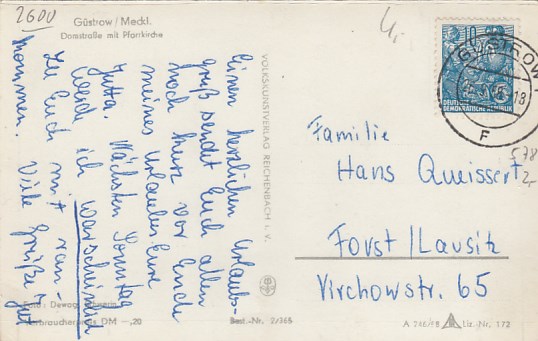 2600
Güstrow / Meckl.
Domstraße mit Pfarrkirche
Einen herzlichen Urlaubs-
gruß sendet Euch allen
noch kurz vor Ende
meines Urlaubes Eure
Jutta. Nächsten Sonntag
werde ich warscheinlich
zu Euch mit ran-
kommen. Viele Grüße
VOLKSKUNSTVERLAG REICHENBACH i. V.
Foto: Dewag
Verbraucherpreis DM —,20
Best.-Nr. 2/365
GÜSTROW 1
18
F
10
DEUTSCHE
DEMOKRATISCHE REPUBLIK
Familie
Hans Queissert
Forst/Lausitz
Virchowstr. 65
578
2,-
A 766/58
Liz.-Nr. 172